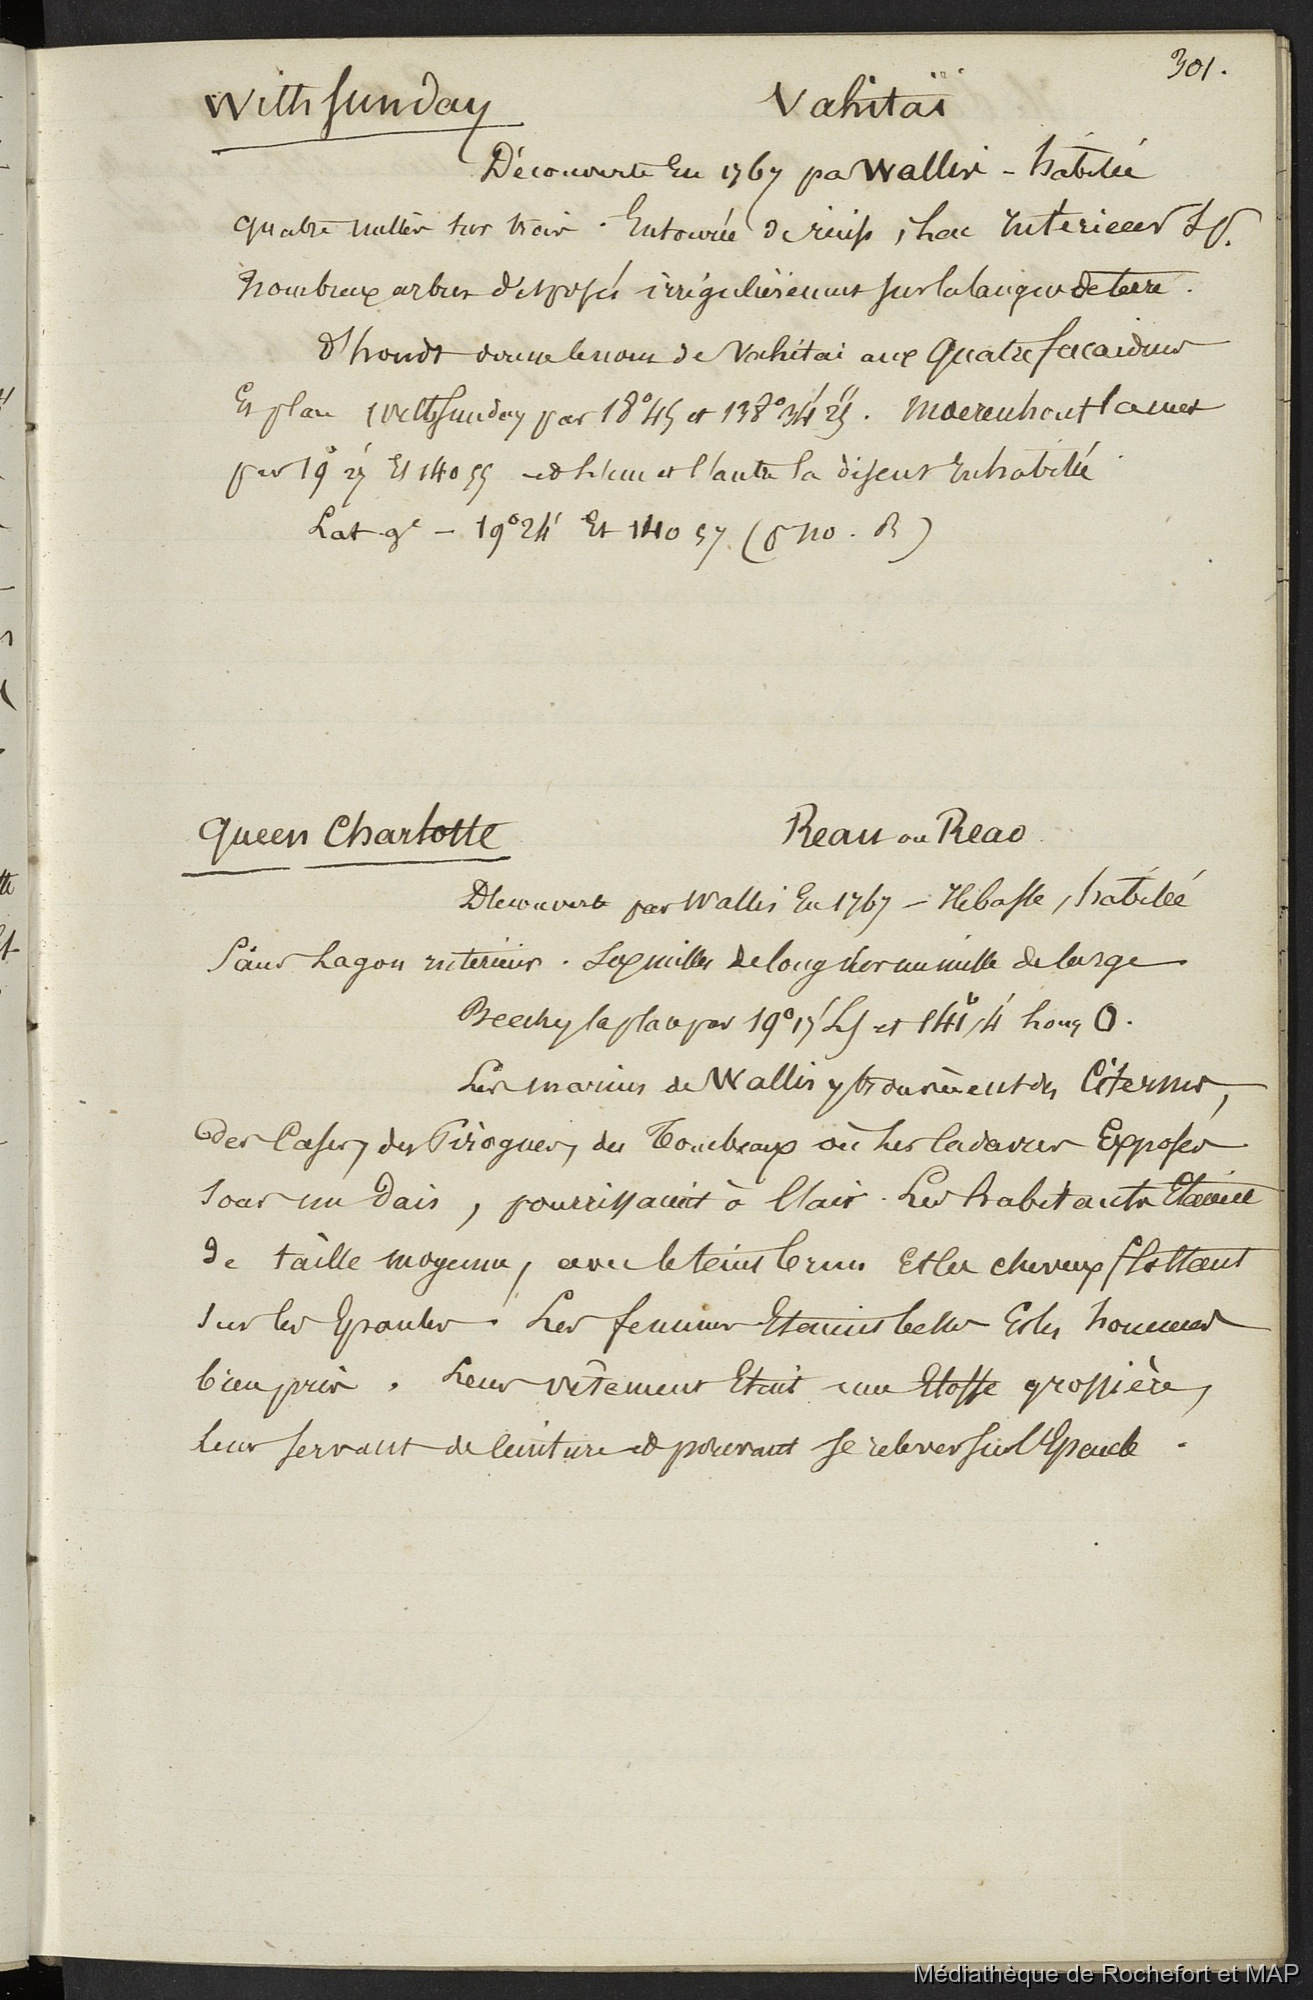 301.
Withsunday Vahitaï
Découverte En 1767 par Wallis - habitée
quatre milles sur trois. Entourée de récifs, Lac Intérieur
nombreux arbres disposés irrégulièrement sur la langue de terre.
d'hondt donne le nom de Vahitai aux Quatre facardins
Et place Withsunday par 18° 45 et 138° 34' 23". Moerenhout la met
par 19° 27' Et 140 55 et l'un et l'autre la disent Inhabitée
Lat - 19° 24' Et 140 57
Queen Charlotte Reau ou Reao
Découverte par Wallis En 1767 - Très basse, habitée
Sans Lagon intérieur. Six milles de long sur un mille de large
Beechy la place par 19° 17' LS et 141° 4' Long O.
Les marins de Wallis y trouvèrent des Citernes,
des Cases, des Pirogues, des Tombeaux où les Cadavres Exposés
sous un Dais, pourrissaient à l'air. Les habitants Etaient
de taille moyenne, avec le teint brun Et les cheveux flottant
sur les Epaules. Les femmes Etaient belles Et les hommes
bien pris. Leur vêtement Etait une Etoffe grossière,
leur servant de Ceinture et pouvant se relever sur l'Epaule.
Médiathèque de Rochefort et MAP